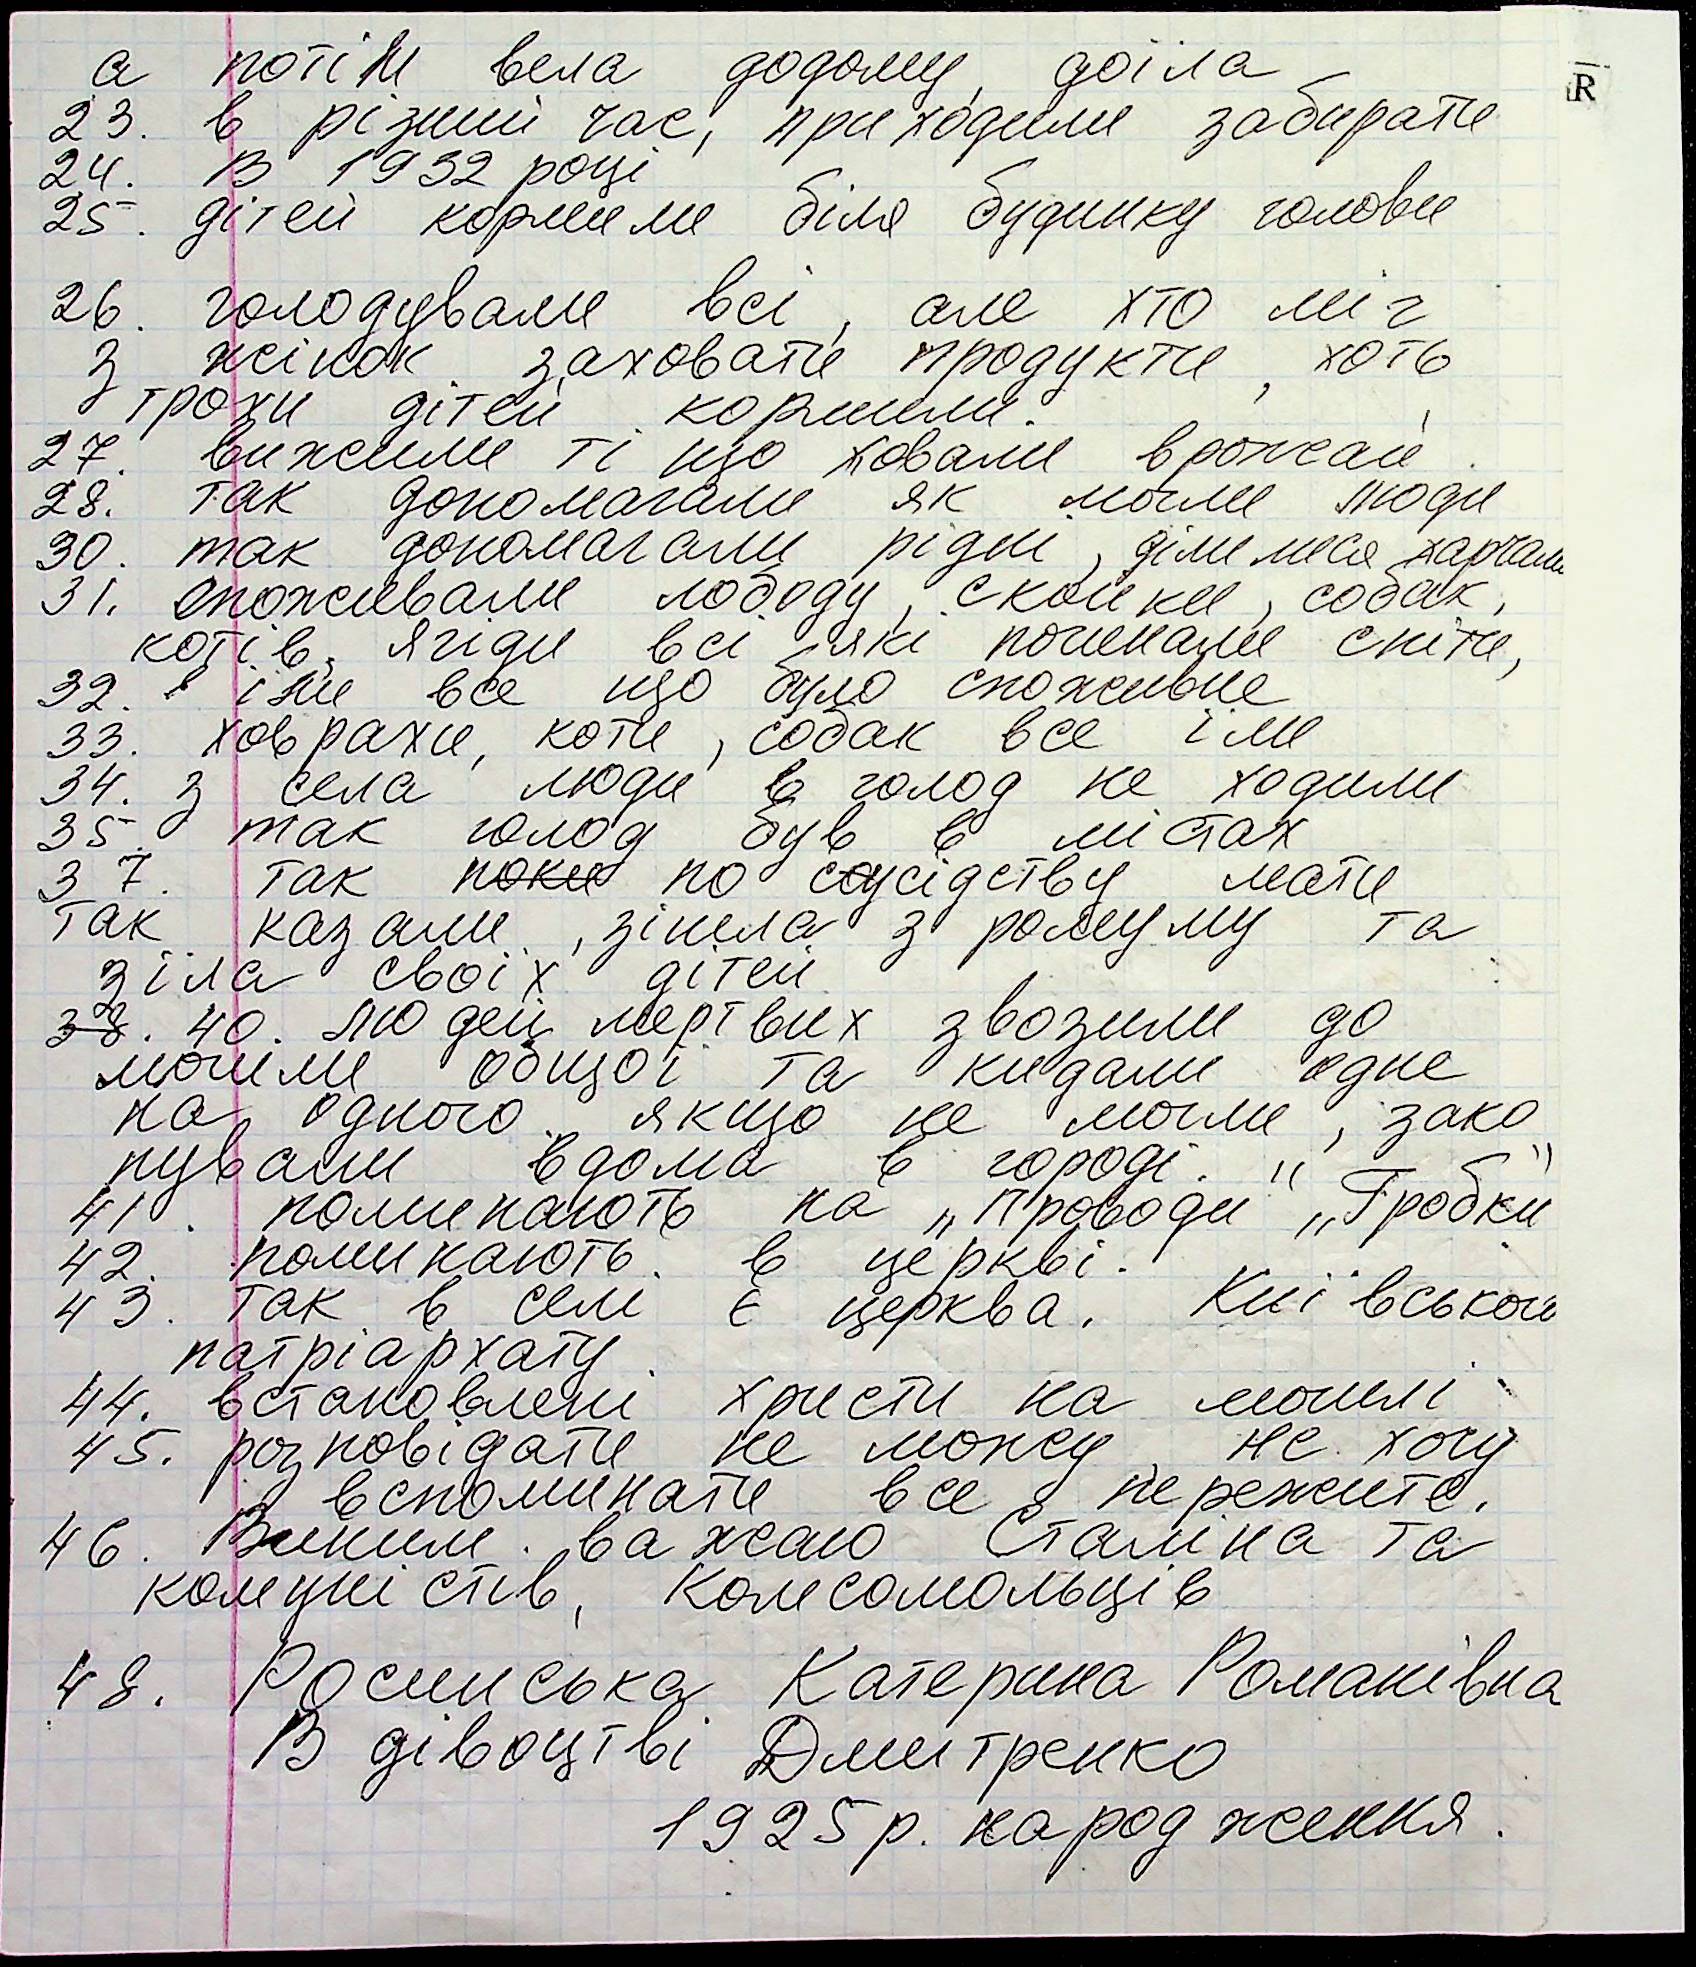 а потім вела додому, доїла
R
23. в різний час, приходили забирати
24. В 1932 році
25. дітей кормили біля будинку голови
26. голодували всі, але хто міг
з жінок заховати продукти, хоть
трохи дітей кормили.
27. вижили ті що ховали врожай.
28. так допомагали як могли люди
30. так допомагали рідні, ділилися харчами
31. споживали лободу, скойки, собак,
котів, ягіди всі які починали спіти,
32. їли все що було споживне
33. ховрахи, коти, собак все їли
34. з села люди в голод не ходили
35. так голод був в містах
37. так поки по сусідству мати
так казали, зішла з розуму та
зїла своїх дітей
38. 40. людей мертвих звозили до
могили общої та кидали одне
на одного. якщо не могли, зако
пували вдома в городі.
41. поминають на „Проводи" „Гробки"
42. поминають в церкві.
43. так в селі є церква. Київської
патріархату.
44. встановлені христи на могилі
45. розповідати не можу не хочу
вспоминати все пережите.
46. Виним важаю Сталіна та
комуністів, Комсомольців
48. Росинська Катерина Романівна
В дівоцтві Дмитренко
1925 р. народження.